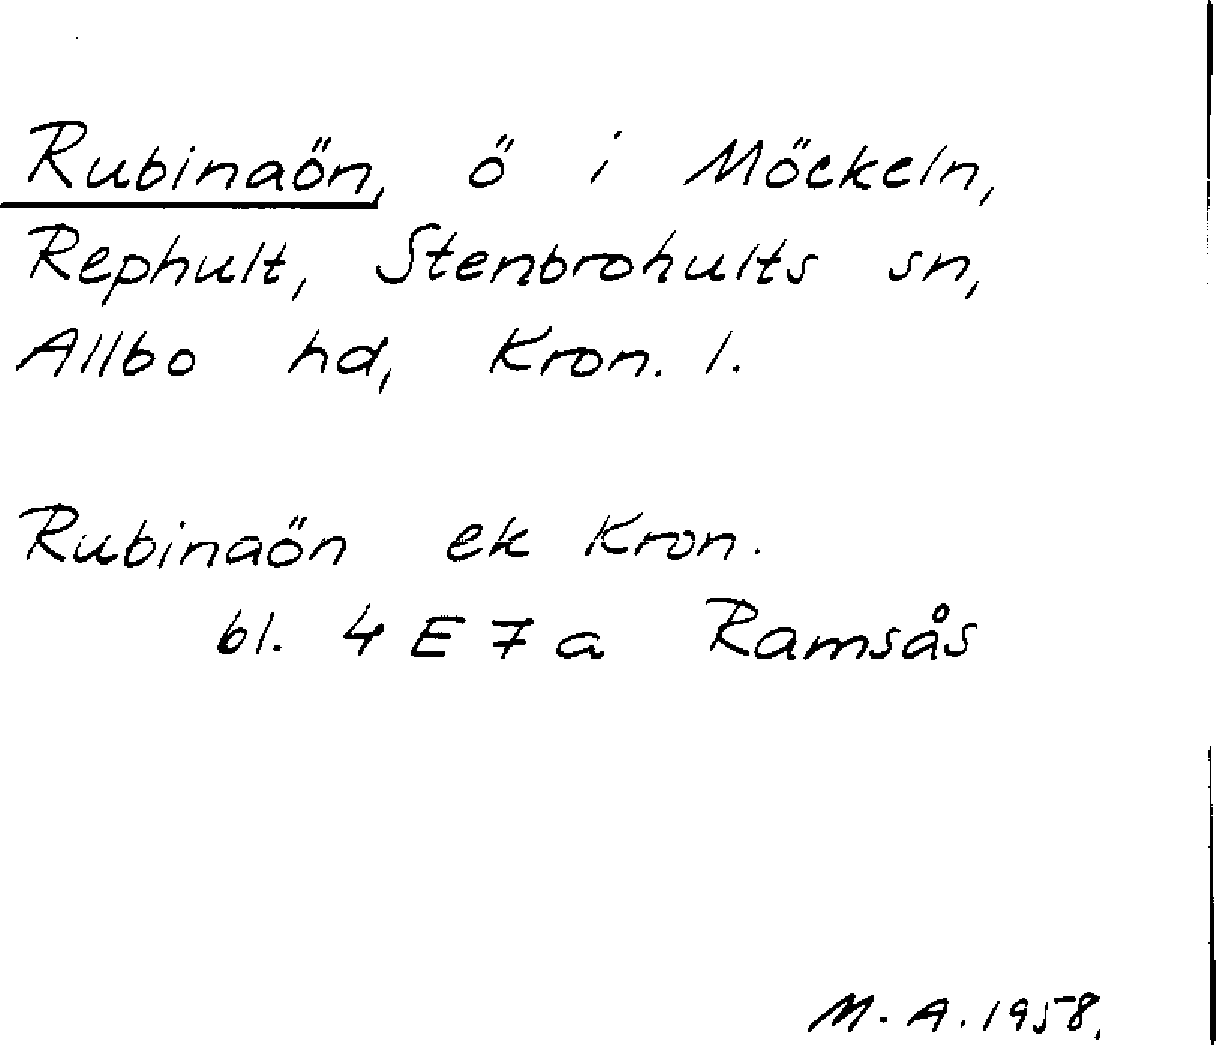 Rubinaön, ö i Möckeln,
Rephult, Stenbrohults sn,
Allbo hd, Kron. l.
Rubinaön ek Kron.
bl. 4 E 7 a Ramsås
M. A. 1958.